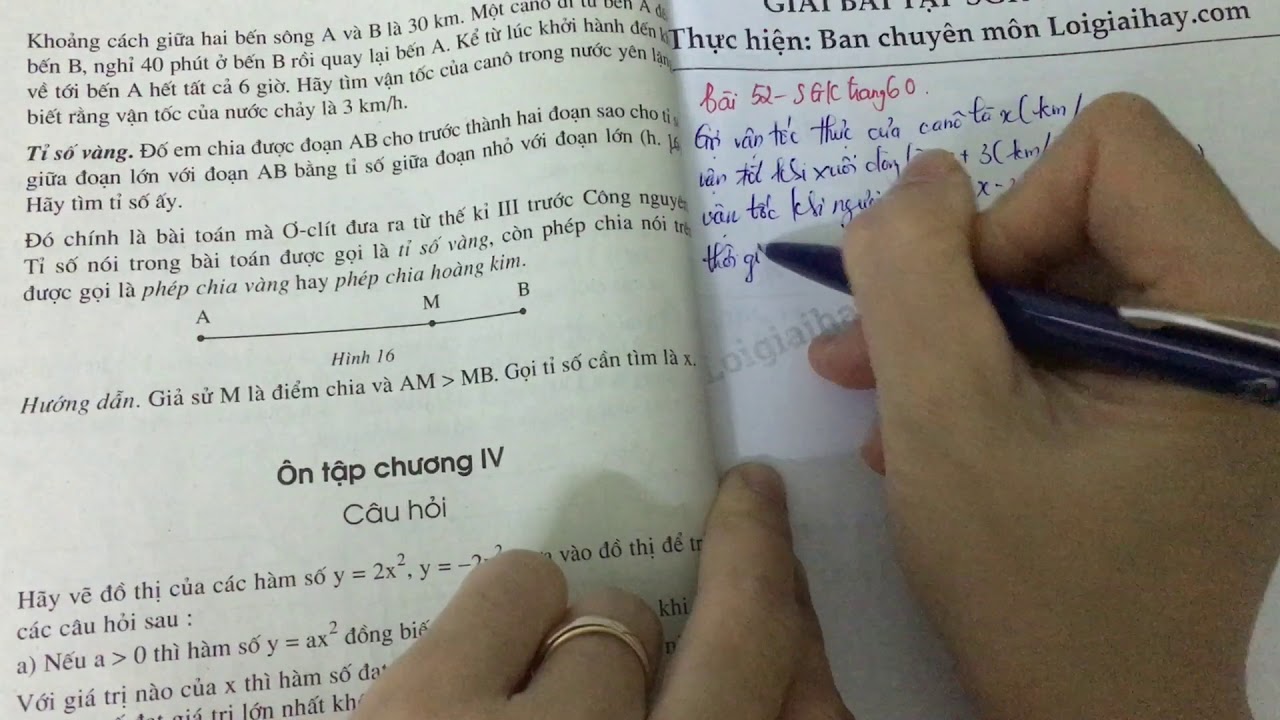 Khoảng cách giữa hai bến sông A và B là 30 km. Một canô đi từ bến A
bến B, nghỉ 40 phút ở bến B rồi quay lại bến A. Kể từ lúc khởi hành đến
về tới bến A hết tất cả 6 giờ. Hãy tìm vận tốc của canô trong nước yên
biết rằng vận tốc của nước chảy là 3 km/h.
Tỉ số vàng. Đố em chia được đoạn AB cho trước thành hai đoạn sao cho tỉ
giữa đoạn lớn với đoạn AB bằng tỉ số giữa đoạn nhỏ với đoạn lớn (h.
Hãy tìm tỉ số ấy.
Đó chính là bài toán mà Ơ-clít đưa ra từ thế kỉ III trước Công
Tỉ số nói trong bài toán được gọi là tỉ số vàng, còn phép chia nói
được gọi là phép chia vàng hay phép chia hoàng kim.
A M B
Hình 16
Hướng dẫn. Giả sử M là điểm chia và AM > MB. Gọi tỉ số cần tìm là x.
Ôn tập chương IV
Câu hỏi
Hãy vẽ đồ thị của các hàm số y = 2x², y = vào đồ thị để
các câu hỏi sau :
a) Nếu a > 0 thì hàm số y = ax² đồng khi
Với giá trị nào của x thì hàm số
giá trị lớn nhất
Thực hiện: Ban chuyên môn Loigiaihay.com
Bài 52 - SGK trang 60.
Gọi vận tốc thực của canô là x (km/
vận tốc khi xuôi dòng + 3 (km/
vận tốc khi x -
thời